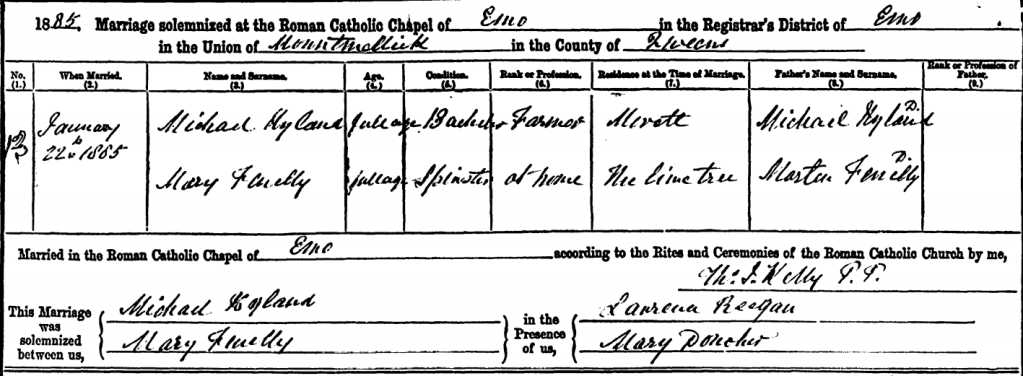 1885. Marriage solemnized at the Roman Catholic Chapel of Emo in the Registrar's District of Emo
in the Union of Mountmellick in the County of Queens
No. (1.) When Married. (2.) Name and Surname. (3.) Age. (4.) Condition. (5.) Rank or Profession. (6.) Residence at the Time of Marriage. (7.) Father's Name and Surname. (8.) Rank or Profession of Father. (9.)
January 22 1885 Michael Hyland full age Bachelor Farmer Michael Hyland D.
Mary Fenelly full age Spinster at home The lime tree Martin Fenelly D.
Married in the Roman Catholic Chapel of Emo according to the Rites and Ceremonies of the Roman Catholic Church by me,
Thos. J. Kelly P.P.
This Marriage was solemnized between us, Michael Hyland in the Presence of us, Laurence Reegan
Mary Fenelly Mary